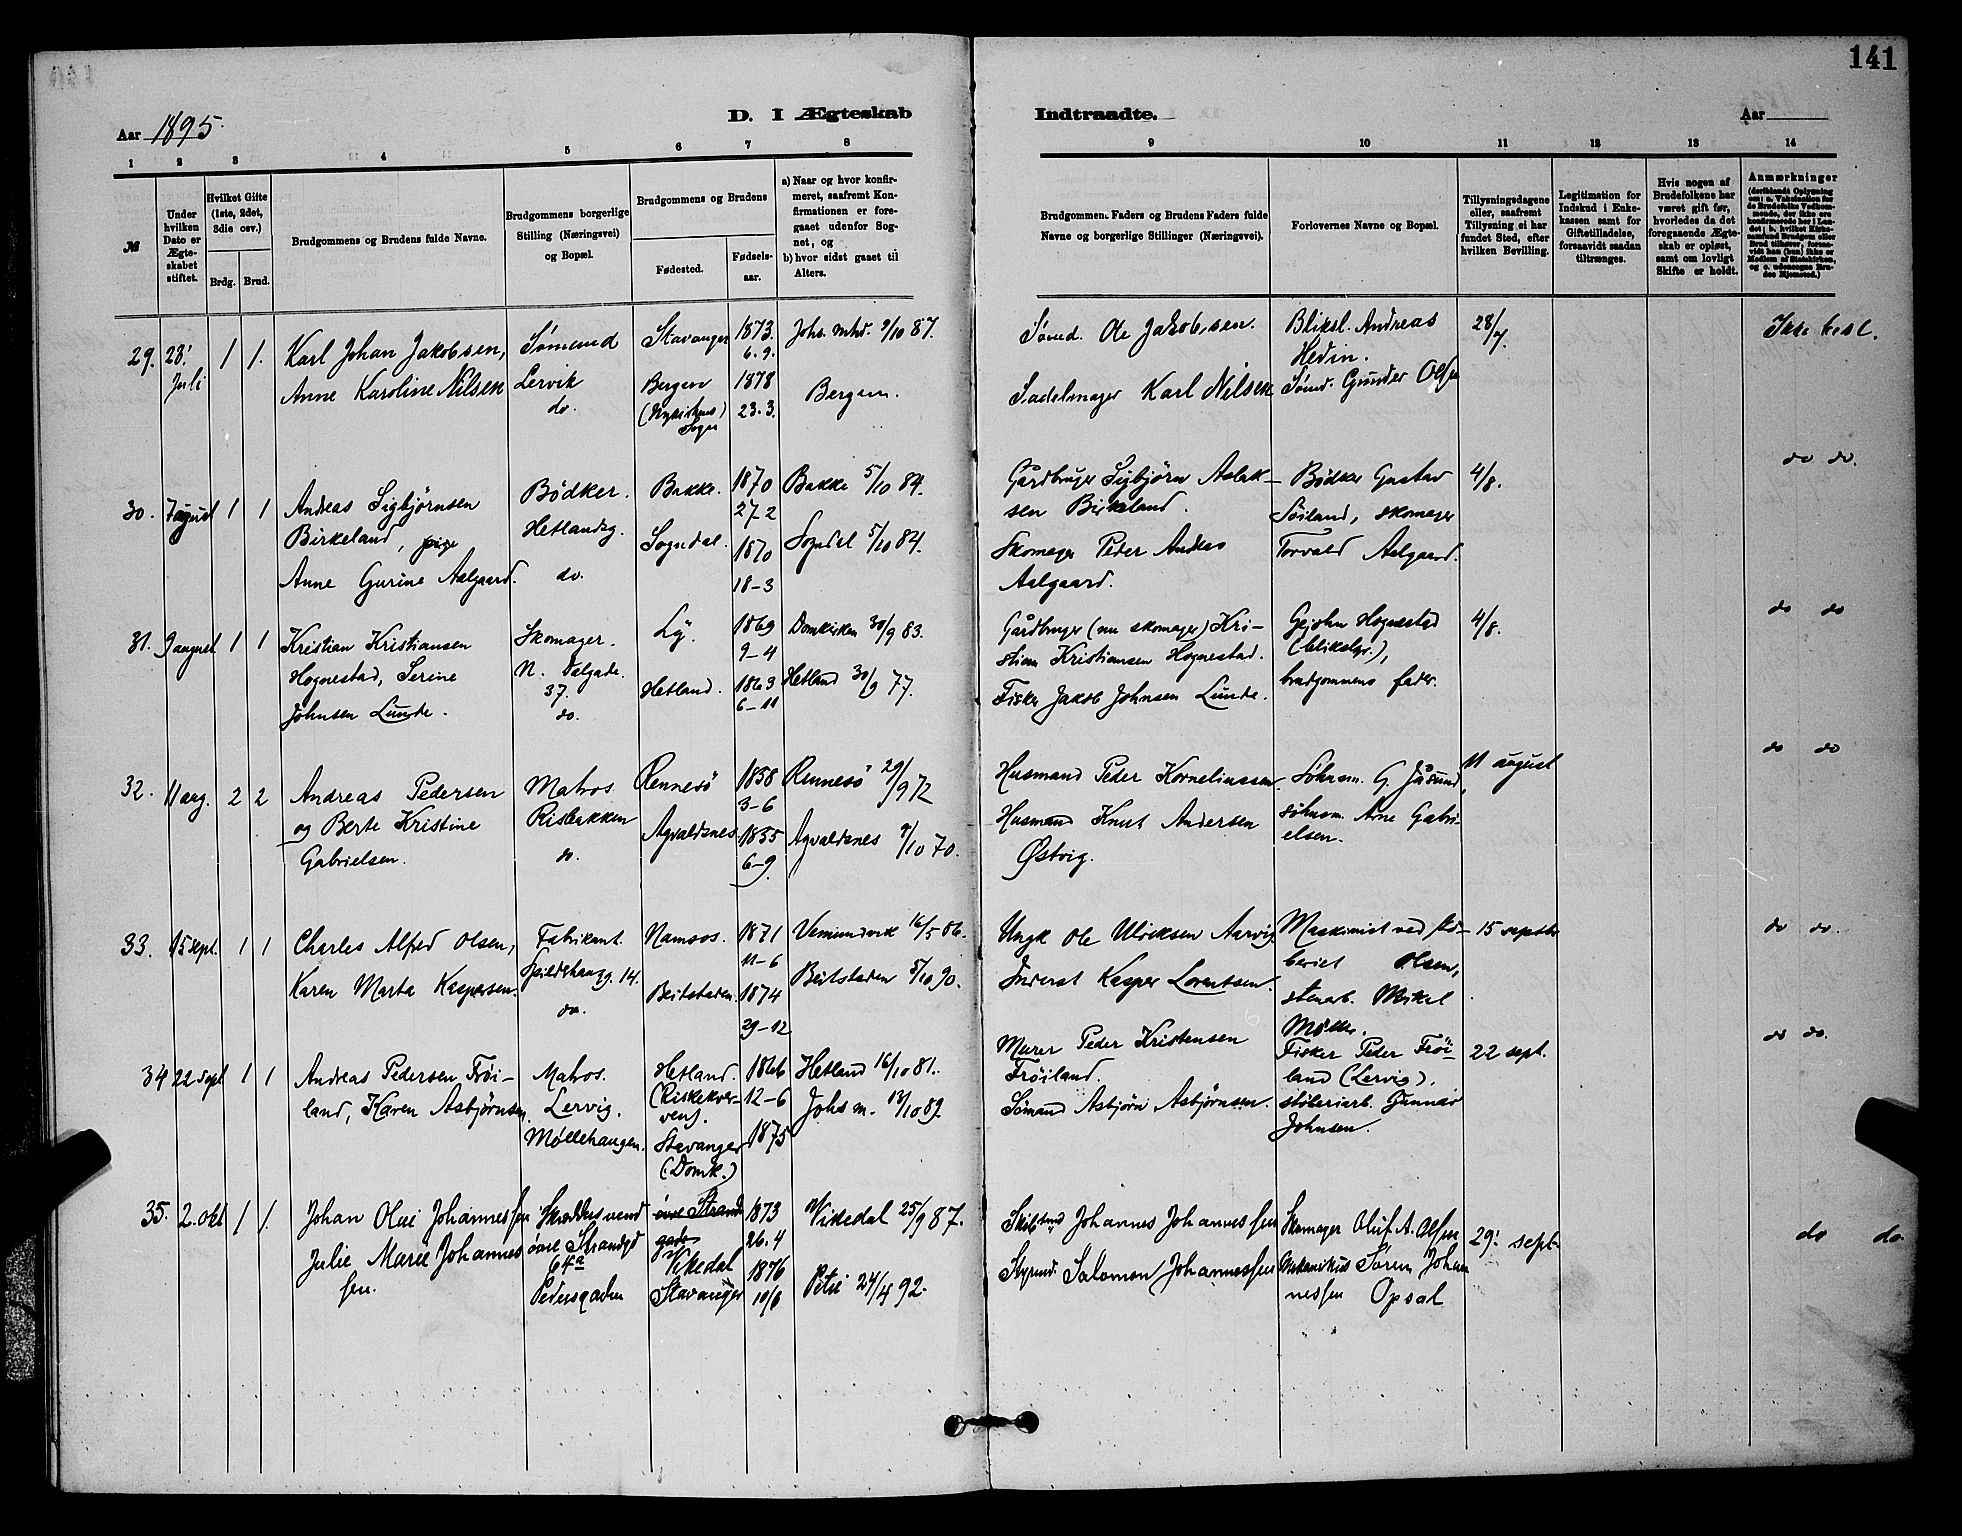 141
Aar 1895.
D. I Ægteskab
Indtraadte.
Aar
1 2 3 4 5 6 7 8 9 10 11 12 13 14
№
Under hvilken Dato er Ægteskabet stiftet.
Hvilket Gifte (1ste, 2det, 3die osv.)
Brdg. Brud.
Brudgommens og Brudens fulde Navne.
Brudgommens borgerlige Stilling (Næringsvei) og Bopæl.
Brudgommens og Brudens
Fødested.
Fødselsaar.
a) Naar og hvor konfirmeret, saafremt Konfirmationen er foregaaet udenfor Sognet, og
b) hvor sidst gaaet til Alters.
Brudgommen. Faders og Brudens Faders fulde Navne og borgerlige Stillinger (Næringsvei).
Forlovernes Navne og Bopæl.
Tillysningsdagene eller, saafremt Tillysning ei har fundet Sted, efter hvilken Bevilling.
Legitimation for Indskud i Enkekassen samt for Giftetilladelse, forsaavidt saadan tiltrænges.
Hvis nogen af Brudefolkene har været gift før, hvorledes da det foregaaende Ægteskab er opløst, samt om lovligt Skifte er holdt.
Anmærkninger
29. 28' Juli 1 1.
Karl Johan Jakobsen,
Anne Karoline Nilsen
Sømand
Lervik
do.
Stavanger
Bergen
1873.
6.9.
1878
23.3.
Johs. mhd. 9/10 87.
Bergen.
Sømd. Ole Jakobsen.
Sadelmager Karl Nilsen
Bliksl. Andreas
Hedin.
Sømd. Gunder Olsen
28/7.
30. 7 august 1 1
Andreas Sigbjørnsen
Birkeland, pige
Anne Gurine Aalgaard.
Bødker.
Hetlandsg.
do.
Bakke.
Sogndal.
1870
27-2
1870
18-3
Bakke 5/10 84.
Sogndal 5/10 84.
Gårdbruger Sigbjørn Aslak-
sen Birkeland.
Skomager Peder Andreas
Aalgaard.
Bødker Gustav
Söiland, skomager
Torvald Aalgaard.
4/8.
do do.
31. 9 august 1 1
Kristian Kristiansen
Hognestad, Serine
Johnsen Lunde.
Skomager.
N. Dalgade.
37.
do.
Lÿ.
Hetland.
1869
9-4
1863
6-11
Domkirken 30/9 83.
Hetland 30/9 77.
Gårdbruger (nu skomager) Kri-
stian Kristiansen Hognestad.
Fisker Jakob Johnsen Lunde.
Hognestad
brudgommens fader.
4/8.
do do
32. 11 aug. 2 2
Andreas Pedersen
og Berte Kristine
Gabrielsen.
Matros
Risbakken
do.
Rennesö
Agvaldsnes
1858
3-6
1855
6-9.
Rennesö 29/9 72
Agvaldsnes 9/10 70.
Husmand Peder Korneliussen.
Husmand Knut Andersen
Østvig.
G. Jåsund,
Arne Gabri-
elsen.
11 august
do do
33. 15 sept. 1 1
Charles Alfred Olsen,
Karen Marta Kaspersen.
Fabrikant.
Spilderhaugg. 14.
do.
Namsos.
Beitstaden.
1871
11-6
1874
29-12
Vemundvik 16/5 86.
Beitstaden 5/10 90.
Ungk. Ole Ulriksen Aarvig
Inderst Kasper Lorentsen.
Maskinist ved stö-
beriet Olsen,
stenarb. Mikal
Møller.
15 septbr
do do.
34 22 sept 1 1
Andreas Pedersen Fröi-
land, Karen Asbjørnsen.
Matros.
Lervig.
Møllehaugen.
Hetland.
Stavanger
(Domk.)
1866
12-6
1875
Hetland 16/10 81.
Johs m. 13/10 89.
Murer Peder Kristensen
Fröiland.
Sömand Asbjörn Asbjörnsen.
Fisker Peder Fröi-
land (Lervig),
stöberiarb. Gunnar
Johnsen.
22 sept.
do do.
35. 2. okt 1 1.
Johan Olai Johannessen
Julie Marie Johannes
sen.
Skræddersvend
övre Strandgd
64a
Pedersgaden
övre Strand
gade
Vikedal
Stavanger
1873
26.4
1876
10/6
Vikedal 25/9 87.
Petri 24/4 92.
Johannes Johannessen
Styrmd. Salomon Johannessen
Skomager Oluf A. Olsen
Mekanikus Søren Johan
nessen Opsal
29' sept.
do do.